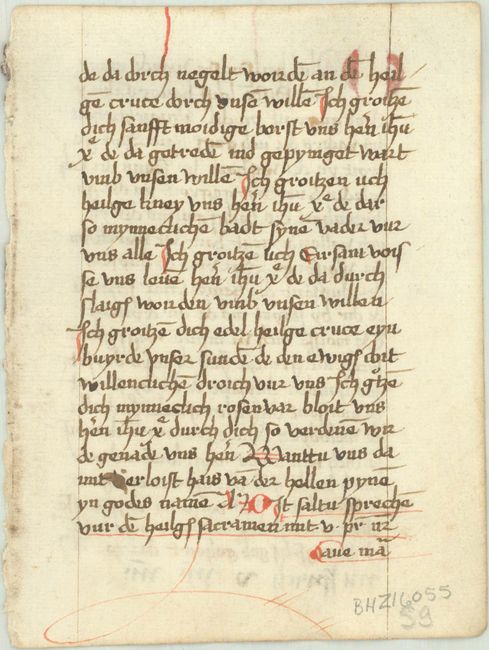 de da dorch negelt wordē an dē heil
gē cruce dorch vnsen willē Ich groitzē
dich sanfft moidige borst vns hern̄ ihū
xp̄ de da getredē ind gepynget wart
vmb vnsen willē Ich groitzen uch
heilge kney vns hern̄ ihū xp̄ de dar
so mynneclichē badt synē vader vur
vns alle Ich groitzē uch Eirsam vois
se vns leuē hern̄ ihū xp̄ de da durch
slagē worden vmb vnsen willen
Ich groitzē dich edel heilge cruce eyn
buyrde vnser sundē de den ewigē doit
willenclichē droich vur vns Ich gtzē
dich mynneclich rosenvar bloit vns
hern̄ ihū xp̄ durch dich so verdenē wir
de genade vns hern̄ Wanttu vns da
mit erloist hais va der hellen pyne
yn godes namē Dit saltu spreche
vur dē heilgē sacrament mit v pr nr
aue mā
BHZ16055
59